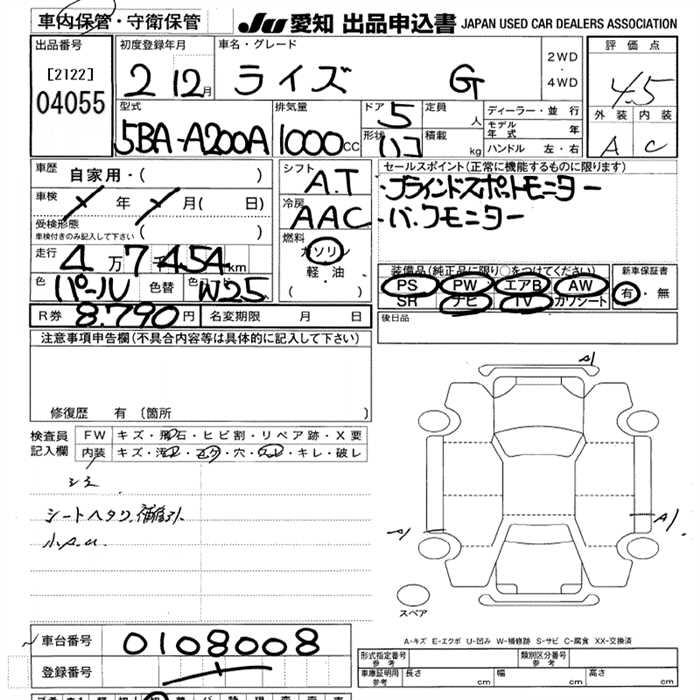 車内保管・守衛保管 JU 愛知 出品申込書 JAPAN USED CAR DEALERS ASSOCIATION
出品番号 初度登録年月 車名・グレード 評価点
[2122] 2 12月 ライズ G 2WD・4WD 4.5
04055 型式 排気量 ドア 5 定員 人 ディーラー・並行 外装 内装
5BA-A200A 1000cc 形状 ハコ 積載 kg モデル年式 年 A C
ハンドル 左・右
車歴 自家用・( ) シフト A.T セールスポイント(正常に機能するものに限ります)
車検 年 月( 日) 冷房 AAC ・ブラインドスポットモニター
受検形態 ・バックモニター
車検付きのみ記入して下さい ( ) 燃料
走行 4万7千454km ガソリン 装備品(純正品に限り○をつけてください) 新車保証書
色 パール 色替 色コード W25 軽・油 PS PW エアB AW 有・無
( ) SR ナビ TV カワシート
R券 8,790円 名変期限 月 日 後日品
注意事項申告欄(不具合内容等は具体的に記入して下さい)
修復歴 有 (箇所 )
検査員 FW キズ・飛石・ヒビ割・リペア跡・X要
記入欄 内装 キズ・汚レ・コゲ・穴・スレ・キレ・破レ
シミ
シートヘタリ
A1
A1
A1
スペア
A-キズ E-エクボ U-凹み W-補修跡 S-サビ C-腐食 XX-交換済
車台番号 0108008 形式指定番号 参考 類別区分番号 参考
登録番号 車庫証明用 参考 長さ cm 幅 cm 高さ cm